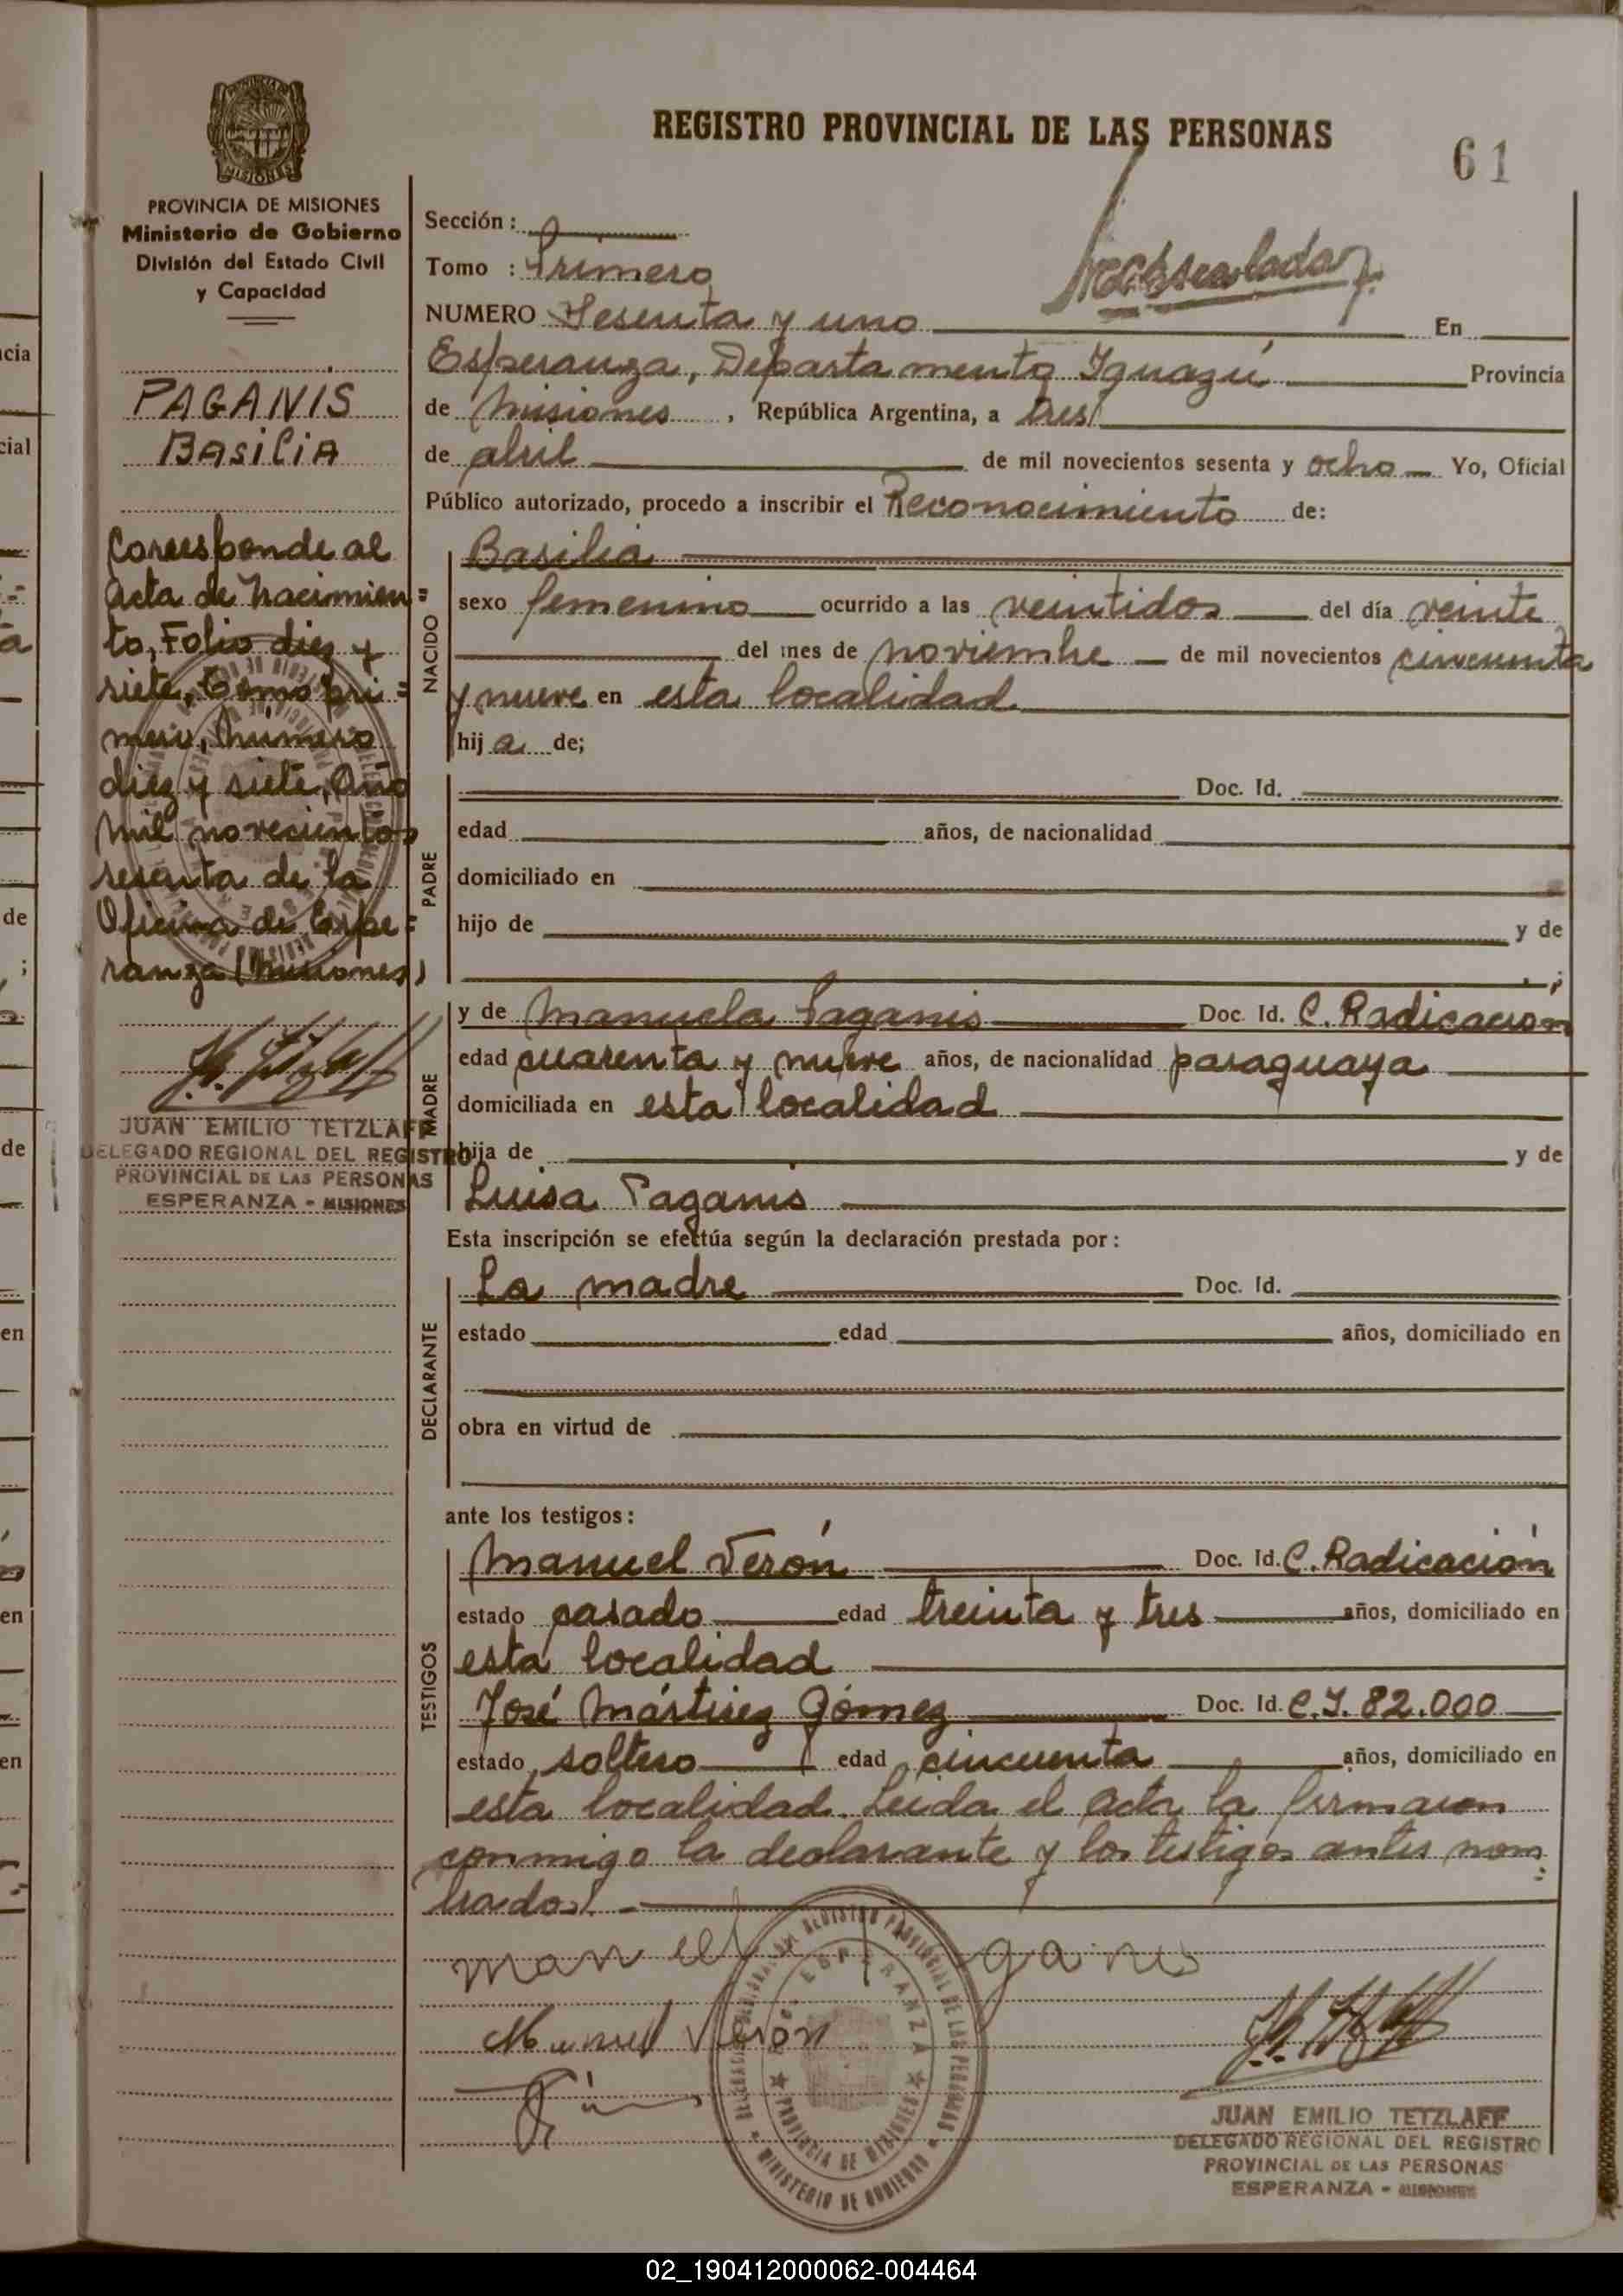 REGISTRO PROVINCIAL DE LAS PERSONAS
61
MISIONES
PROVINCIA DE MISIONES
Ministerio de Gobierno
División del Estado Civil
y Capacidad
PAGANIS
BASILIA
Corresponde al
Acta de Nacimien=
to, Folio diez y
siete, Tomo pri=
mero, Número
diez y siete, Año
mil novecientos
sesenta de la
Oficina de Espe=
ranza (Misiones)
JUAN EMILIO TETZLAFF
DELEGADO REGIONAL DEL REGISTRO
PROVINCIAL DE LAS PERSONAS
ESPERANZA - MISIONES
Sección :
Tomo : Primero
NUMERO Sesenta y uno En
Esperanza, Departamento Iguazú Provincia
de Misiones , República Argentina, a tres
de abril de mil novecientos sesenta y ocho Yo, Oficial
Público autorizado, procedo a inscribir el Reconocimiento de:
NACIDO
Basilia
sexo femenino ocurrido a las veintidos del día veinte
del mes de noviembre de mil novecientos cincuenta
y nueve en esta localidad
hij a de;
PADRE
Doc. Id.
edad años, de nacionalidad
domiciliado en
hijo de y de
;
MADRE
y de Manuela Paganis Doc. Id. C. Radicación
edad cuarenta y nueve años, de nacionalidad paraguaya
domiciliada en esta localidad
hija de y de
Luisa Paganis
Esta inscripción se efectúa según la declaración prestada por :
DECLARANTE
La madre Doc. Id.
estado edad años, domiciliado en
obra en virtud de
ante los testigos :
TESTIGOS
Manuel Verón Doc. Id. C. Radicación
estado casado edad treinta y tres años, domiciliado en
esta localidad
José Mártirez Gómez Doc. Id. C.I. 82.000
estado soltero edad cincuenta años, domiciliado en
esta localidad. Leida el acta la firmaron
conmigo la declarante y los testigos antes nom=
brados.
Manuel Verón
ESPERANZA
PROVINCIA DE MISIONES
MINISTERIO DE GOBIERNO
JUAN EMILIO TETZLAFF
DELEGADO REGIONAL DEL REGISTRO
PROVINCIAL DE LAS PERSONAS
ESPERANZA - MISIONES
02_190412000062-004464